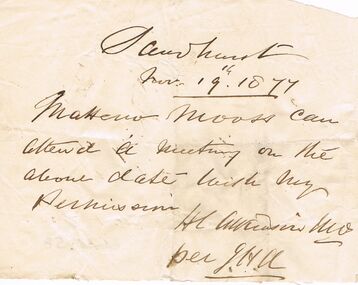 Sandhurst
Nov. 19th. 1877
Matteno Mooss can
attend a meeting on the
above date with my
Permission
H L Atkinson MD
per J.H.A